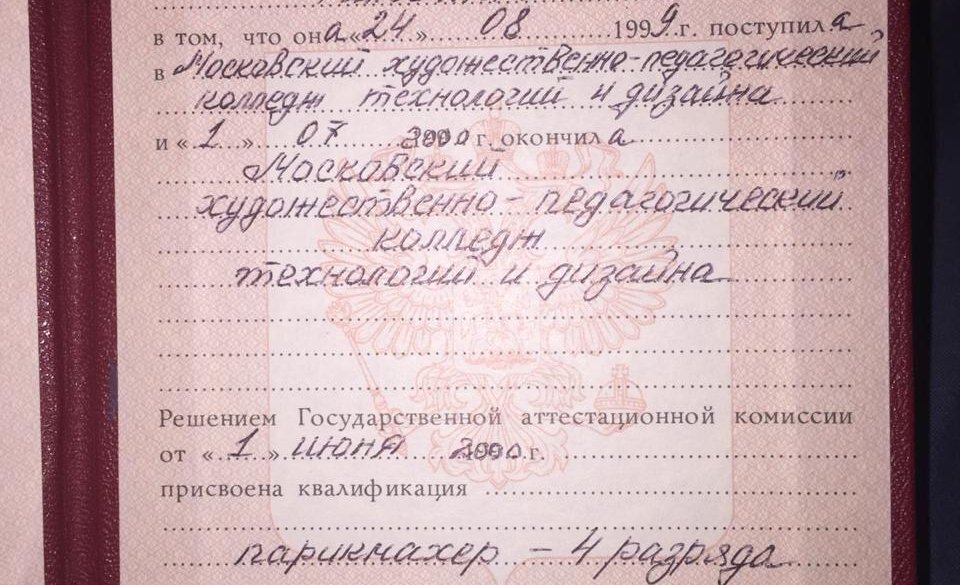 в том, что она «24» 08 1999 г. поступила
в Московский художественно-педагогический
колледж технологий и дизайна
и «1» 07 2000 г. окончила
Московский
художественно-педагогический
колледж
технологий и дизайна
Решением Государственной аттестационной комиссии
от «1» июня 2000 г.
присвоена квалификация
парикмахер - 4 разряда